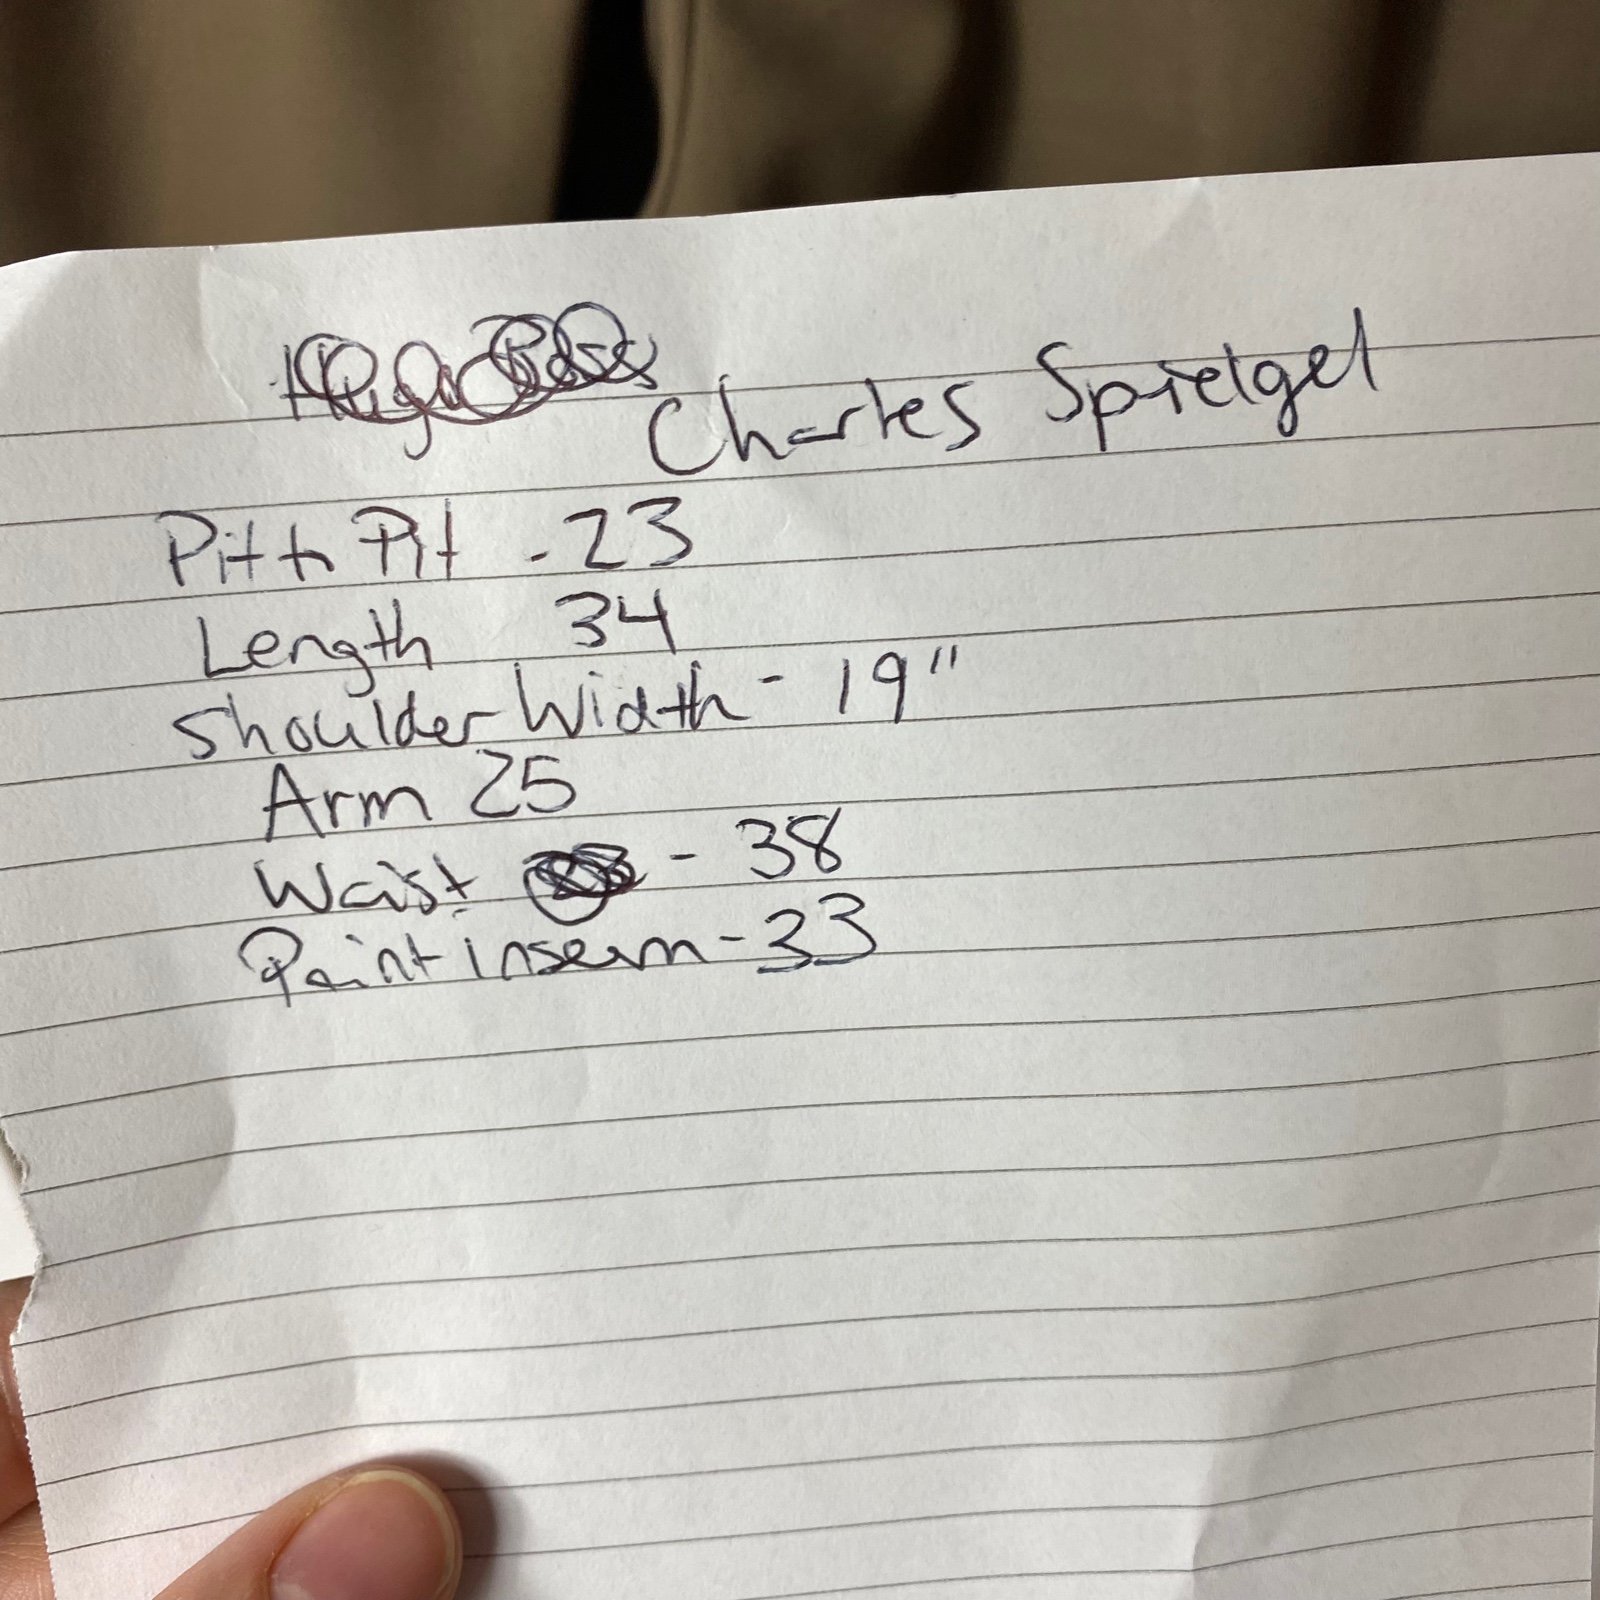 Charles Spielgel
Pit to Pit - 23
Length 34
Shoulder Width - 19"
Arm 25
Waist - 38
Paint inseam - 33